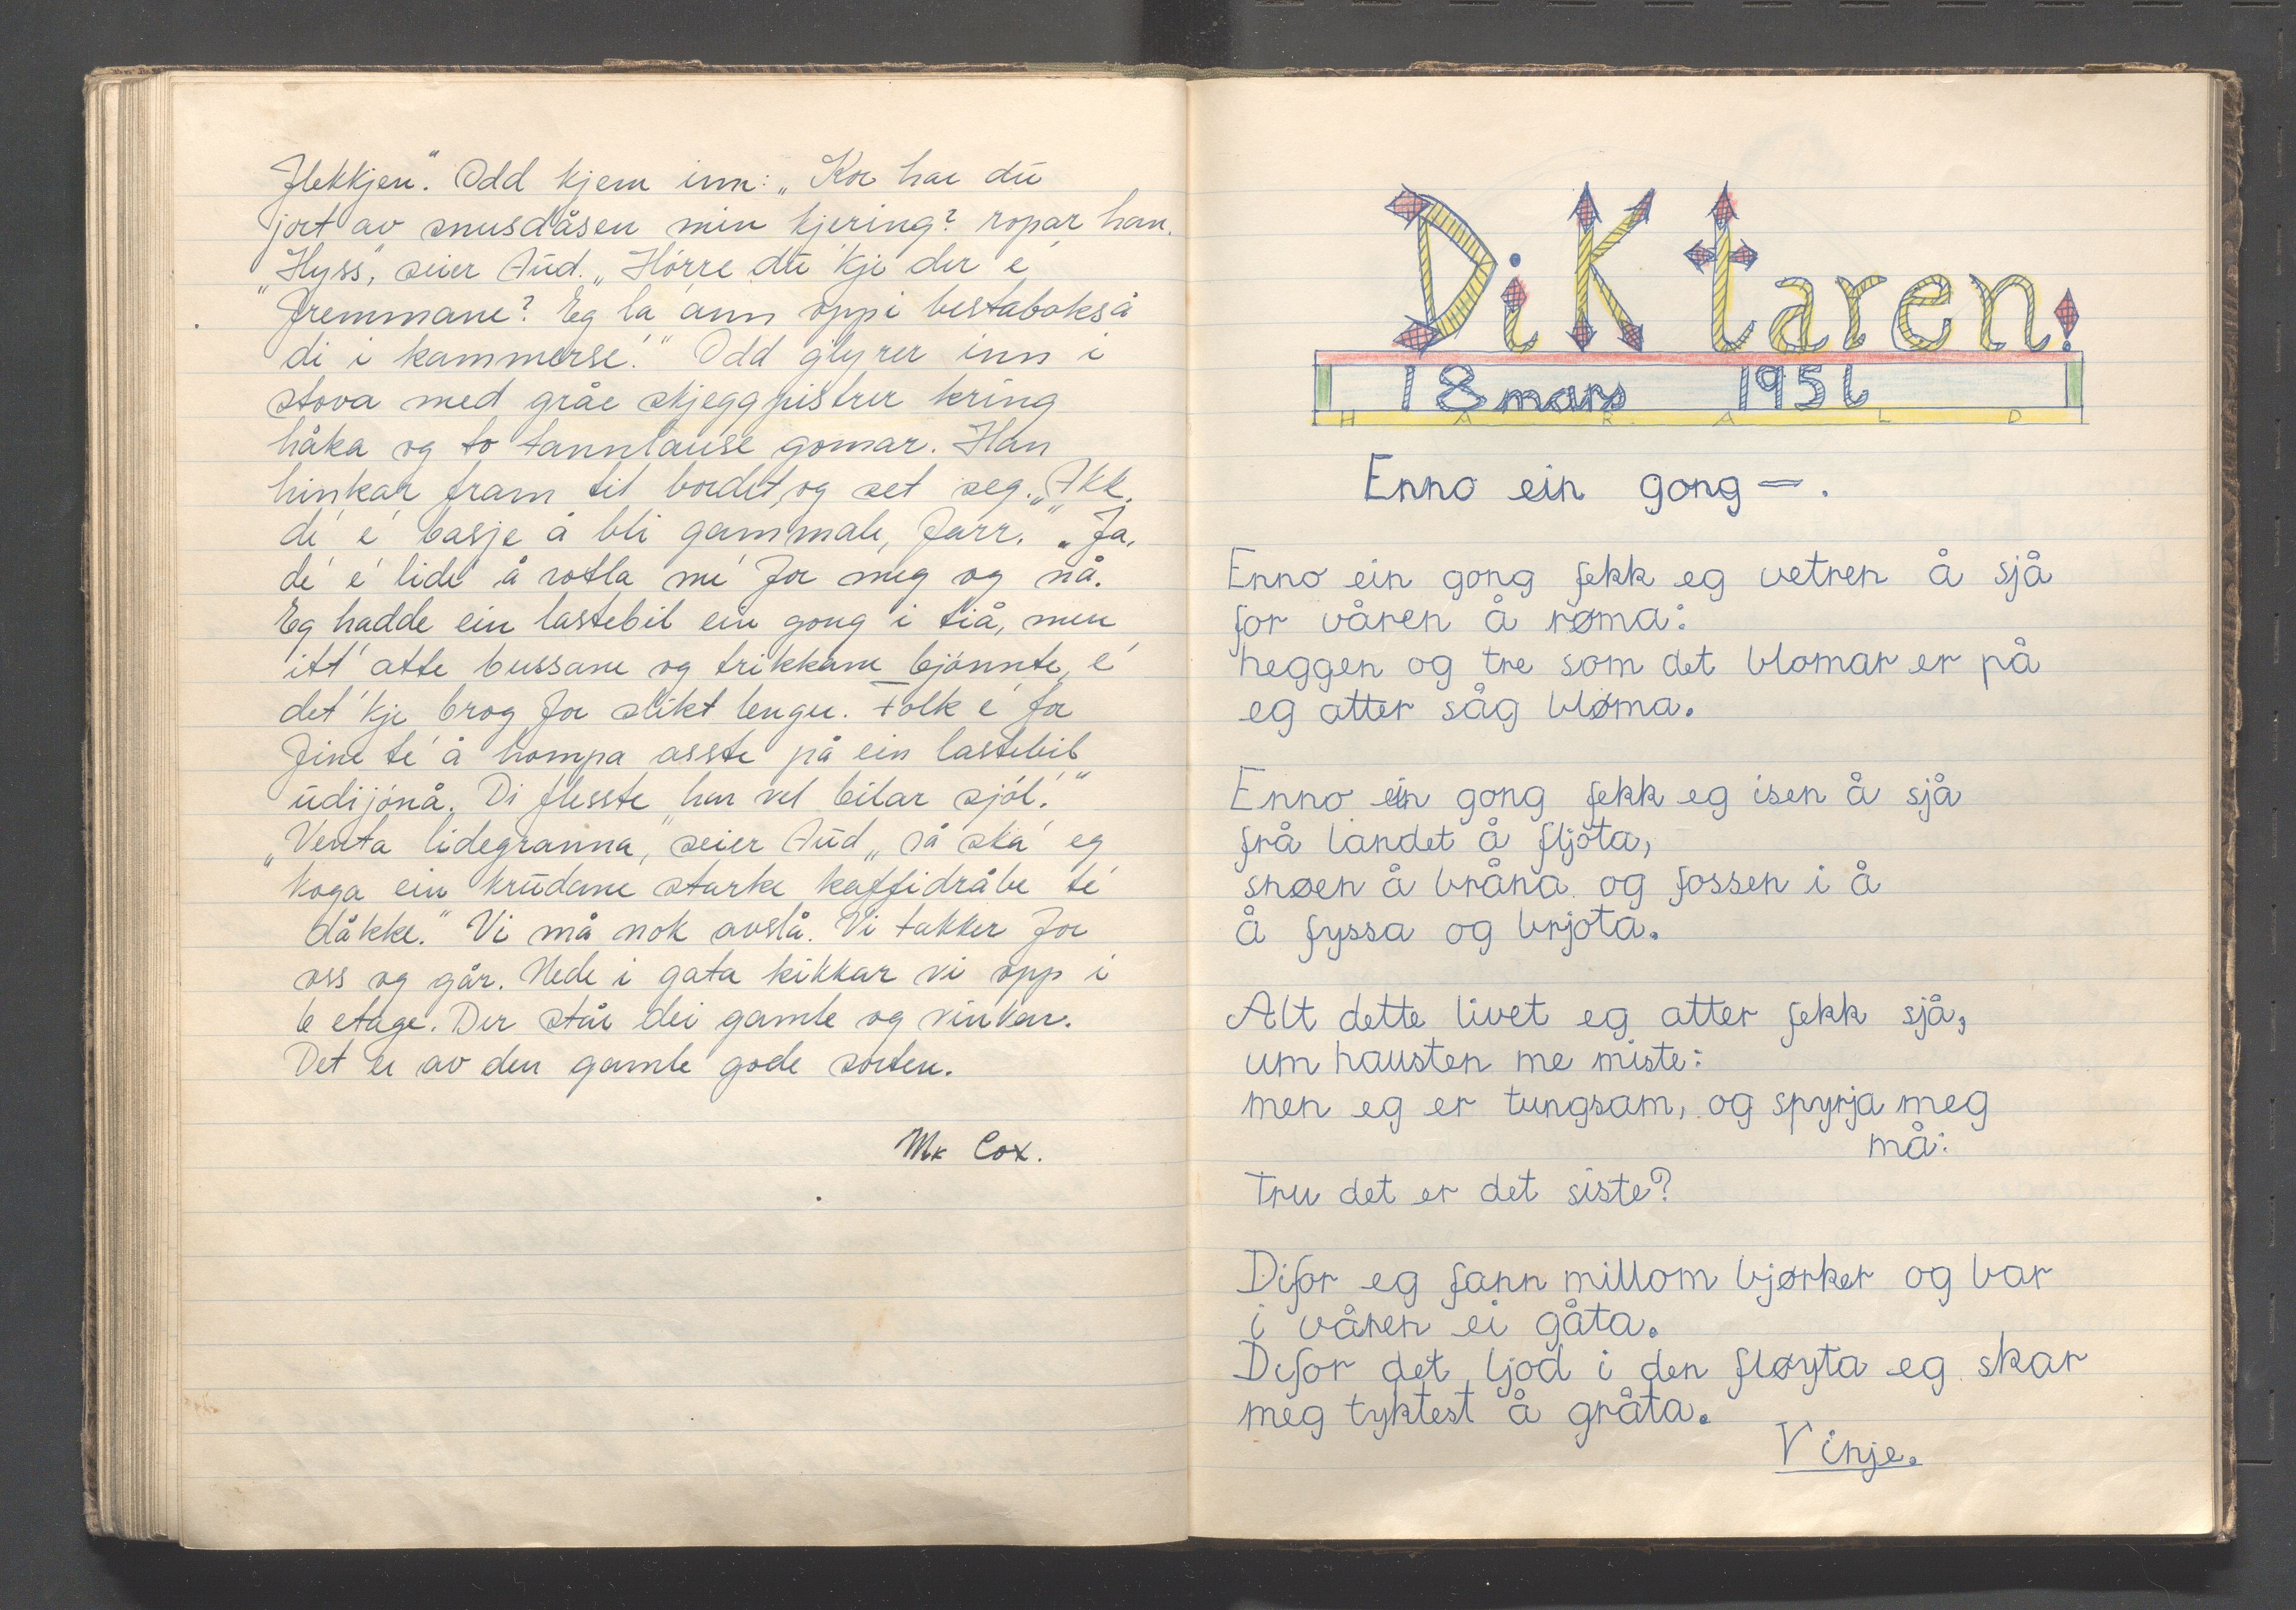 Flekkjen". Odd kjem inn: „Kor har du
jort av snusdåsen min kjering? ropar han.
„Hyss", seier Aud. „Hørre du 'kje der e'
fremmane? Eg la 'ann oppi bestabokså
di i kammerse'." Odd glyrer inn i
stova med gråe skjeggpistrer kring
håka og to tannlause gomar. Han
hinkar fram til bordet, og set seg. „Akk,
de' e' basje å bli gammale, Farr. „Ja,
de' e' lide' å rotla me' for meg og nå.
Eg hadde ein lastebil ein gong i tiå, men
itt' atte bussane og trikkane bjønnte, e'
det 'kje brog for slikt lenger. Folk e' for
fine te' å hompa asste på ein lastebil
udijønå. Di flesste har vel bilar sjøl'."
„Venta lidegranna," seier Aud „så ska' eg
koga ein krudane starke kaffidråbe te'
dåkke." Vi må nok avslå. Vi takker for
oss og går. Nede i gata kikkar vi opp i
6 etage. Der står dei gamle og vinkar.
Det er av den gamle gode sorten.
Mr Cox.
DiKtaren!
18 mars 1956
HARALD
Enno ein gong —.
Enno ein gong fekk eg vetren å sjå
for våren å røma:
heggen og tre som det blomar er på
eg atter såg bløma.
Enno ein gong fekk eg isen å sjå
frå landet å fljota,
snøen å bråna og fossen i å
å fyssa og brjota.
Alt dette livet eg atter fekk sjå,
um hausten me miste:
men eg er tungsam, og spyrja meg
må:
tru det er det siste?
Difor eg fann millom bjørker og bar
i våren ei gåta.
Difor det ljod i den fløyta eg skar
meg tyktest å gråta.
Vinje.